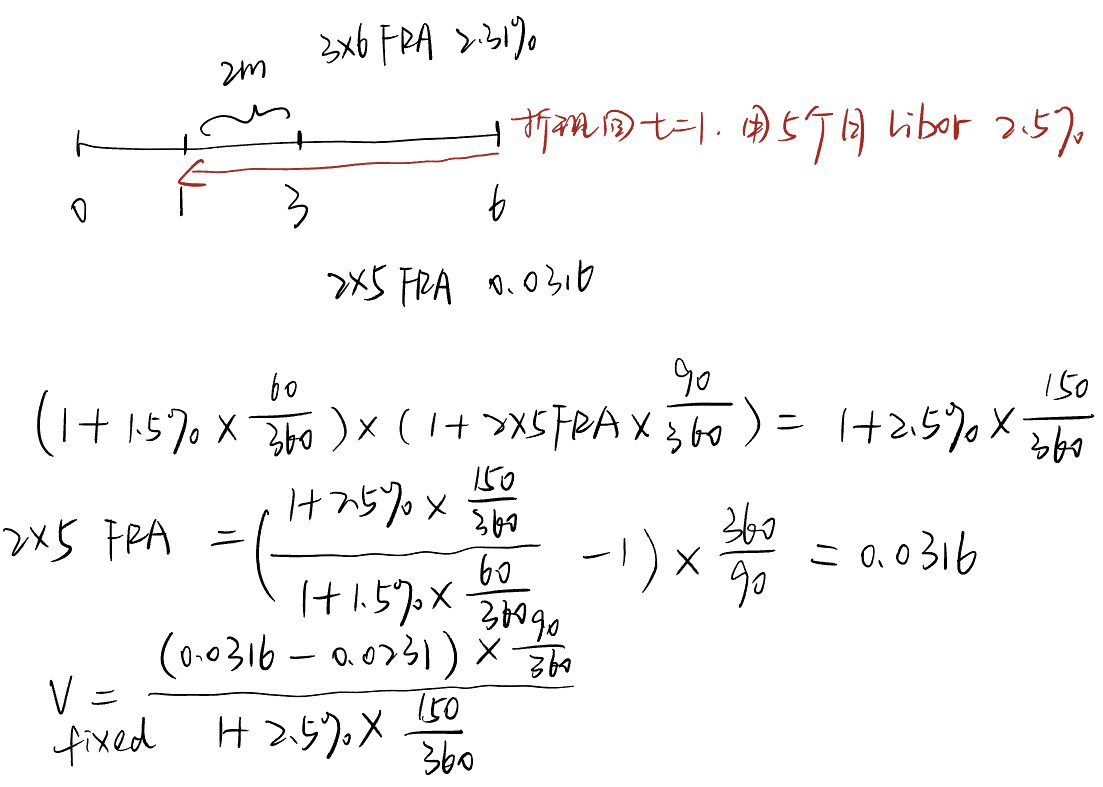 3×6 FRA 2.31%
2m
折现回 t=1. 用5个月 Libor 2.5%
0 1 3 6
2×5 FRA 0.0316
(1 + 1.5% × 60/360) × (1 + 2×5FRA × 90/360) = 1 + 2.5% × 150/360
2×5 FRA = ((1 + 2.5% × 150/360)/(1 + 1.5% × 60/360) - 1) × 360/90 = 0.0316
V fixed = ((0.0316 - 0.0231) × 90/360)/(1 + 2.5% × 150/360)